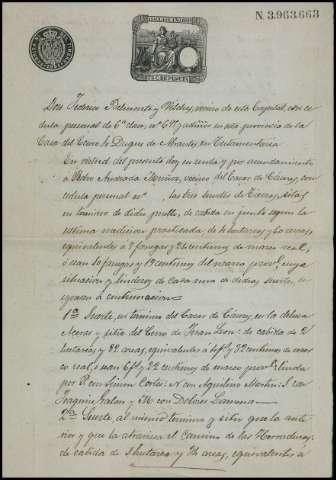 N. 3.963.663
Don Federico Belmonte y Vilches, vecino de esta Capital, con ce-
dula personal de 6ª clase, nº y admor en esta provincia de la
Casa del Excmo Sr Duque de Abrantes, en Extremadura
En virtud del presente doy en renta y por arrendamiento
a Pedro Andrada Muñoz, vecino del Casar de Cáceres, con
cedula personal nº las tres suertes de tierras, sitas
en termino de dicho pueblo, de cabida en junto segun la
ultima medicion practicada, de hectareas, y 60 areas,
equivalentes a fanegas y centimos de marco real,
ó sean 10 fanegas y 19 centimos del marco provl cuya
situacion y linderos de cada una de dichas suertes, se
espresan á continuacion
1ª Suerte, en termino del Casar de Cáceres, en la dehesa
Aceras y sitio del Cerro de Juan Leon: de cabida de 2
hectareas y 82 areas, equivalentes á 4 fs y 32 centimos de mar-
co real, ó sean 6 fs y 22 centimos de marco provl: linda
por P. con Simon Cortés: N. con Aquilino Martin: S. con
Joaquin y M. con Dolores
2ª Suerte al mismo termino y sitio que la ante-
rior y que la atraviesa el camino de las Herraduras,
de cabida de 1 hectarea y 34 areas, equivalentes a